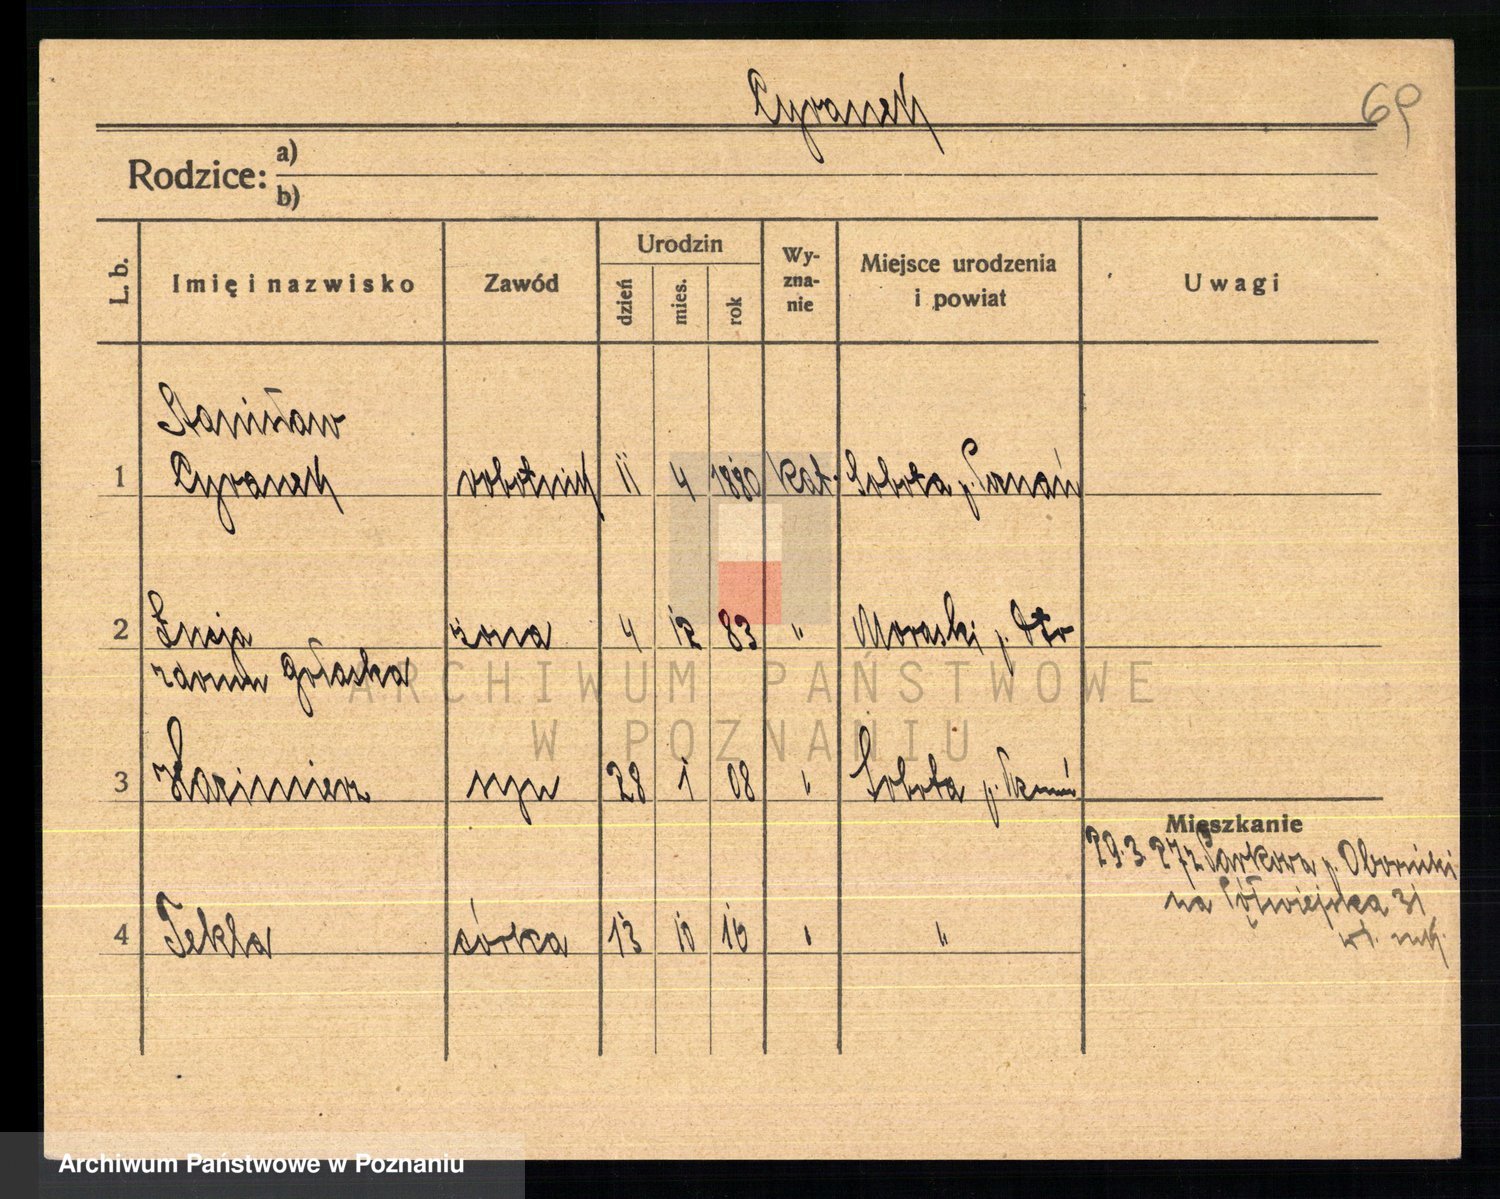 Cyranek
69
Rodzice: a)
b)
L. b.
Imię i nazwisko
Zawód
Urodzin
dzień
mies.
rok
Wy-
zna-
nie
Miejsce urodzenia
i powiat
Uwagi
Stanisław
1 Cyranek robotnik 11 4 1880 kat. Sobota p. Poznań
2 Łucja żona 4 12 83 " Moraski p.
zdomu Gołaska
3 Kazimierz syn 28 1 08 " Sobota p. Poznań
Mieszkanie
29.3.27 z Parkowa p. Oborniki
na Półwiejska 31
4 Tekla córka 13 10 10 " "
ARCHIWUM PAŃSTWOWE
W POZNANIU
Archiwum Państwowe w Poznaniu